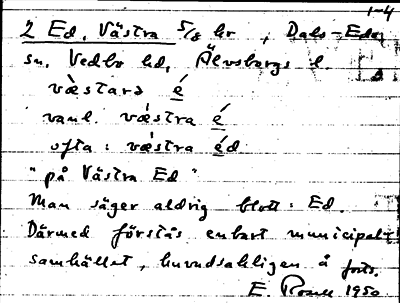 1-4
2 Ed, Västra 5/8 hr, Dals-Eds
sn, Vedbo hd, Älvsborgs l.
væ̀starə é
vanl. væ̀stra é
ofta: væ̀stra éd
"på Västra Ed"
Man säger aldrig blott: Ed.
Därmed förstås enbart municipal-
samhället, huvudsakligen å forts.
E. 1950